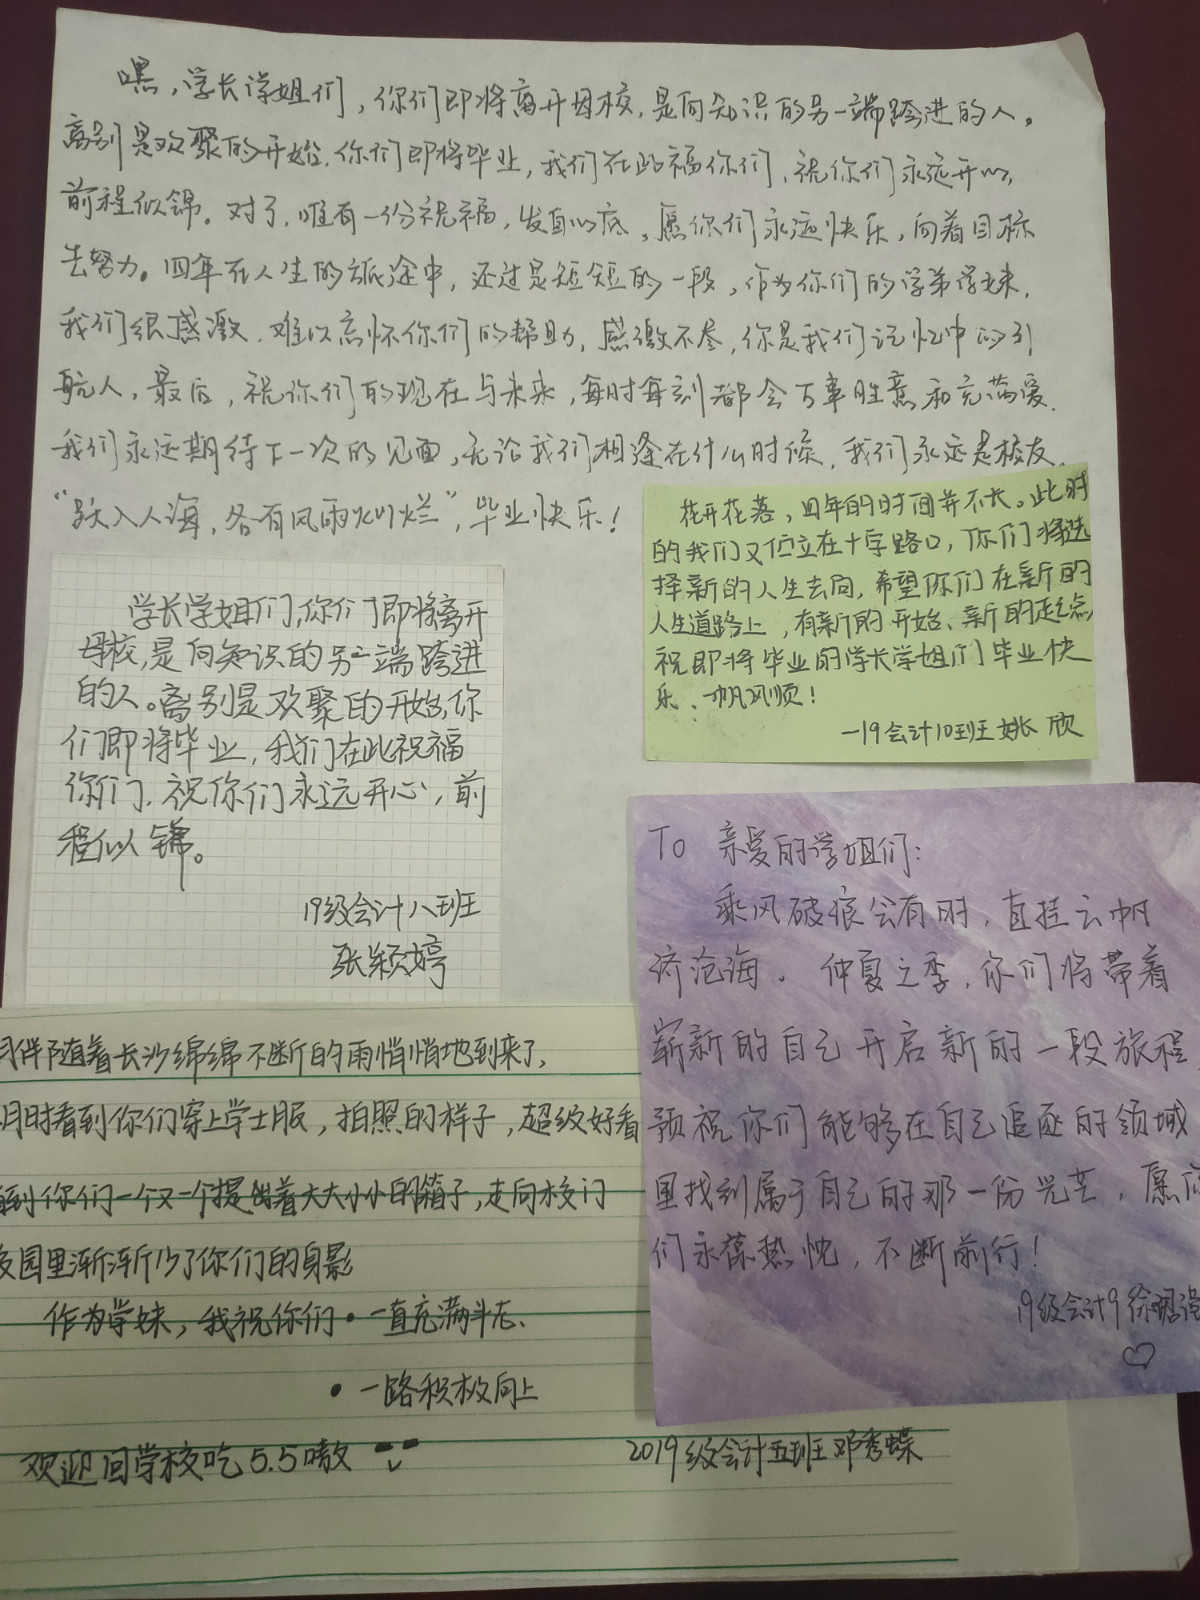 嘿，学长学姐们，你们即将离开母校，是向知识的另一端跨进的人。
离别是欢聚的开始，你们即将毕业，我们在此福你们，祝你们永远开心，
前程似锦。对了，唯有一份祝福，发自心底，愿你们永远快乐，向着目标
去努力。四年在人生的旅途中，还过是短短的一段，作为你们的学弟学妹，
我们很感激，难以忘怀你们的帮助，感激不尽，你是我们记忆中的引
航人，最后，祝你们的现在与未来，每时每刻都会万事胜意和充满爱，
我们永远期待下一次的见面，无论我们相逢在什么时候，我们永远是校友，
“跃入人海，各有风雨灿烂”，毕业快乐！
花开花落，四年的时间并不长。此时
的我们又伫立在十字路口，你们将选
择新的人生去向，希望你们在新的
人生道路上，有新的开始、新的起点
祝即将毕业的学长学姐们毕业快
乐、一帆风顺！
—19会计10班 姚欣
学长学姐们，你们即将离开
母校，是向知识的另一端跨进
的人。离别是欢聚的开始，你
们即将毕业，我们在此祝福
你们，祝你们永远开心，前
程似锦。
19级会计八班
张颖婷
To 亲爱的学姐们：
乘风破浪会有时，直挂云帆
济沧海。仲夏之季，你们将带着
崭新的自己开启新的一段旅程，
预祝你们能够在自己追逐的领域
里找到属于自己的那一份光芒，愿你
们永葆热忱，不断前行！
19级会计9 徐
月伴随着长沙绵绵不断的雨悄悄地到来了，
月时看到你们穿上学士服，拍照的样子，超级好看
看到你们一个又一个提着大大小小的箱子，走向校门
校园里渐渐少了你们的身影
作为学妹，我祝你们 • 一直充满斗志、
• 一路积极向上
欢迎回学校吃5.5嗷
2019级会计五班 邓秀蝶